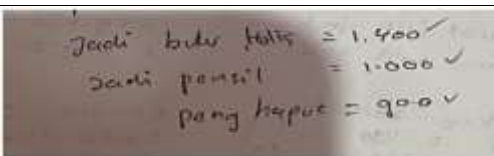 Jadi buku tulis = 1.400 ✓
Jadi pensil = 1.000 ✓
peng hapus = 900 ✓